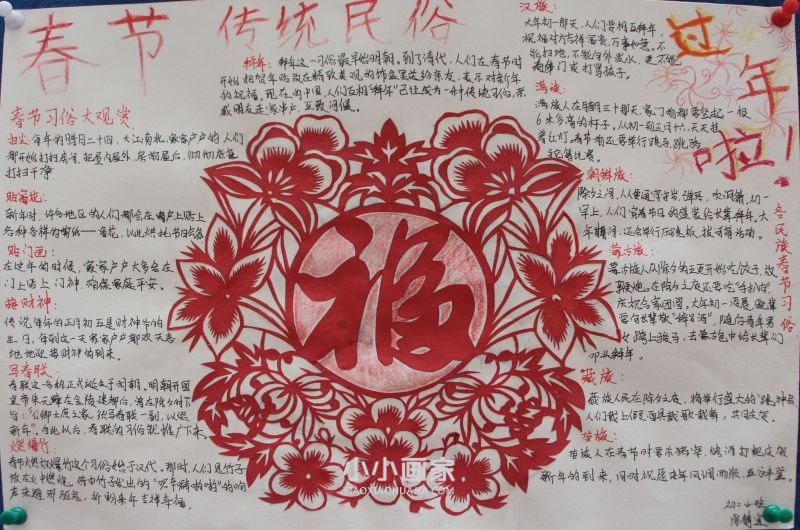 春节 传统民俗
过年啦!
拜年: 拜年这一习俗最早始明朝。到了清代,人们在春节时
开始把贺年贴放在精致美观的饰盒里送给亲友,表示对新年
的祝福。现在的中国,人们互相"拜年"已经成为一种传统习俗,亲
戚朋友走家串户,互致问候。
春节习俗大观赏
扫尘:每年的腊月二十四,大江南北,家家户户的人们
都开始打扫房间,把屋内屋外、房前屋后,彻彻底底
打扫干净
贴窗花:
新年时,许多地区的人们都会在窗户上贴上
各种各样的剪纸——窗花,以此烘托节日气氛
贴门画:
在过年的时候,家家户户大多会在
门上贴上门神,确保家庭平安。
接财神:
传说每年的正月初五是财神爷的
生日,每到这一天家家户户都欢天喜
地地迎接财神的到来。
写春联:
春联这一名称正式诞生于明朝,明朝开国
皇帝朱元璋在金陵建都后,曾在除夕时下
旨:"公卿士庶之家,须写春联一副,以迎
新年"。自此以后,春联的习俗就推广下来
燃爆竹:
春节燃放爆竹这个习俗始于汉代。那时,人们是竹子
放在火中燃烧,借由竹子发出的"噼噼啪啪"的响
声来避邪驱鬼,祈盼来年吉祥幸福。
福
汉族:
大年初一那天,人们要相互拜年,
祝福对方吉祥富贵、万事如意。不
能扫地,不能向外泼水,更不能
两锋门或打骂孩子。
满族:
满族人在腊月三十那天,家门前都要竖起一根
6米多高的杆子。从初一到正月十六,天天挂
着红灯。春节前还要举行跳马、跳骆
驼等比赛。
各民族春节习俗
朝鲜族:
除夕之间,人人要通宵守岁,弹琴、吹洞箫,初一
早上,人们穿着节日的盛装给长辈拜年。大
年期间,还会举行压跳板、拔河等活动。
蒙古族:
蒙古族人从除夕的五更开始吃饺子、放
鞭炮。在除夕之夜还要吃"手扒肉"
庆祝合家团圆,大年初一凌晨,晚辈
要向长辈敬"辞岁酒",随后青年男
女跨上骏马,去蒙古包中给长辈们
叩头拜年,
藏族:
藏族人民在除夕之夜,将举行盛大的"跳神会"
人们戴上假面具载歌载舞,共同庆贺
苗族:
苗族人在春节时要宰猪羊,烧酒打粑庆贺
新年的到来,同时祝愿来年风调雨顺,五谷丰登。
小小画家
XIAOXIAOHUAJIA.COM